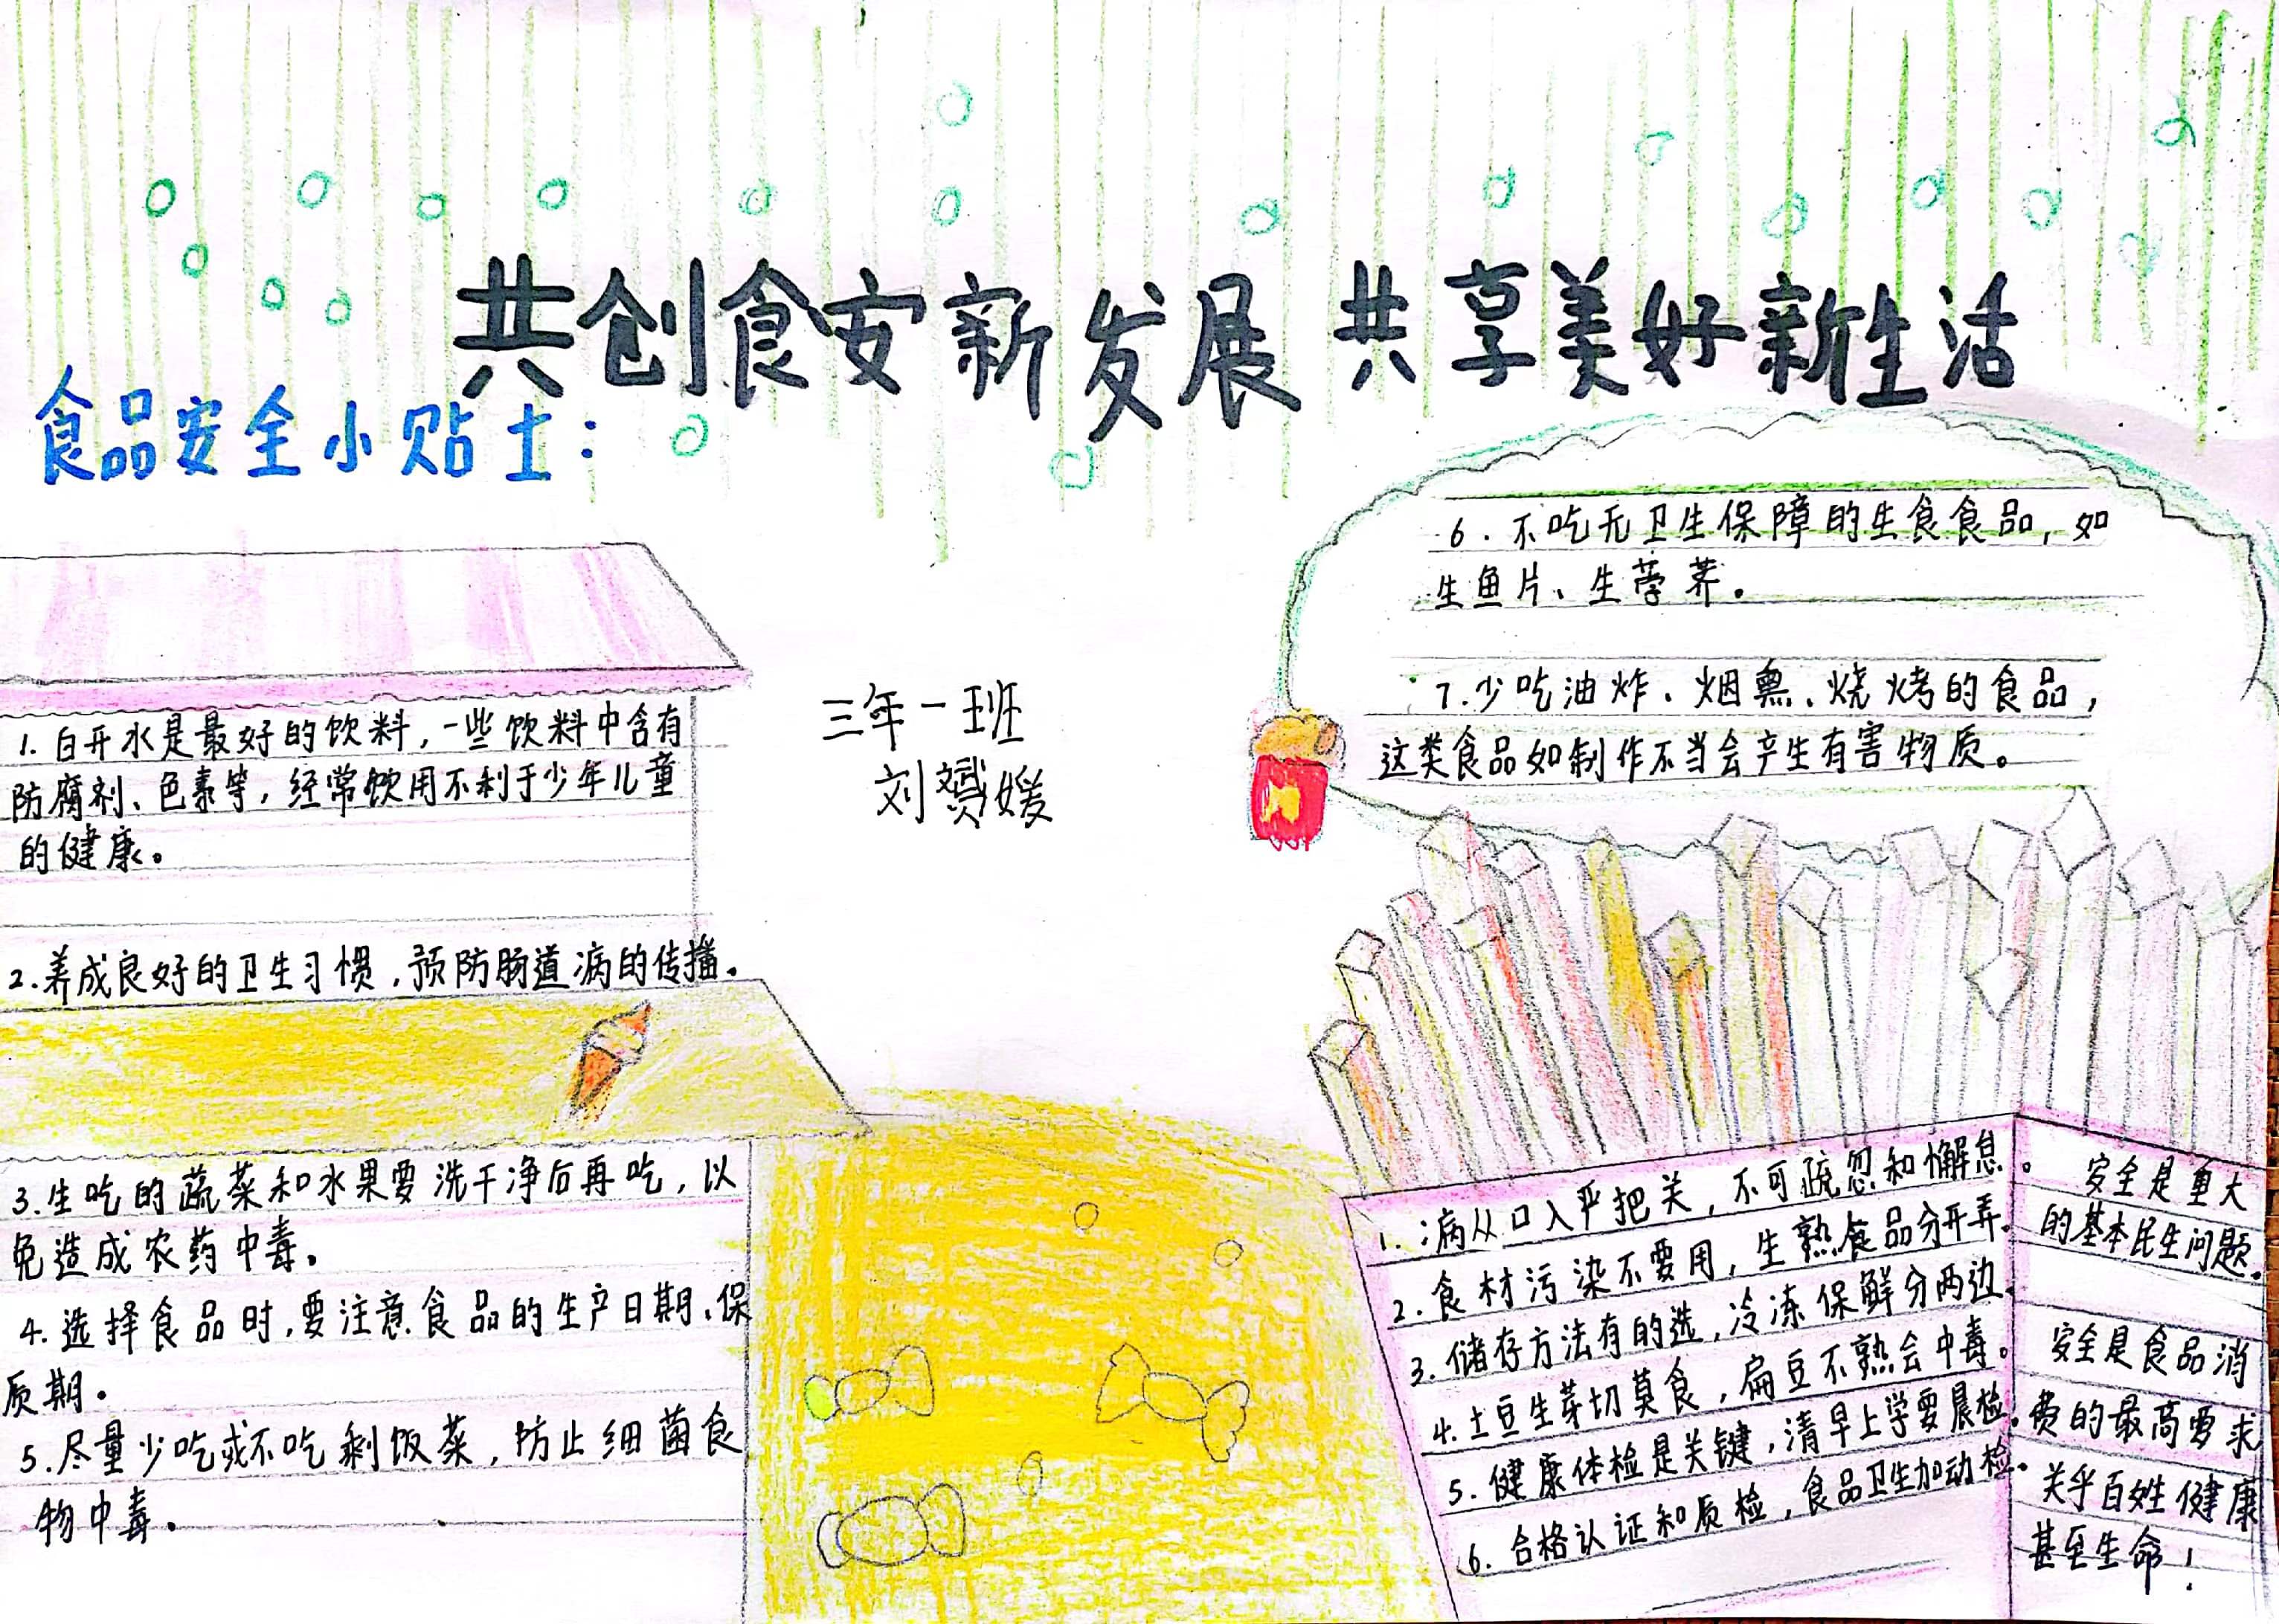 共创食安新发展 共享美好新生活
食品安全小贴士：
1. 白开水是最好的饮料，一些饮料中含有
防腐剂、色素等，经常饮用不利于少年儿童
的健康。
2.养成良好的卫生习惯，预防肠道病的传播。
3.生吃的蔬菜和水果要洗干净后再吃，以
免造成农药中毒。
4. 选择食品时，要注意食品的生产日期、保
质期。
5.尽量少吃或不吃剩饭菜，防止细菌食
物中毒。
三年一班
刘赟媛
6. 不吃无卫生保障的生食食品，如
生鱼片、生荸荠。
7.少吃油炸、烟熏、烧烤的食品，
这类食品如制作不当会产生有害物质。
1. 病从口入严把关，不可疏忽和懈怠。
2. 食材污染不要用，生熟食品分开弄。
3. 储存方法有的选，冷冻保鲜分两边。
4.土豆生芽切莫食，扁豆不熟会中毒。
5. 健康体检是关键，清早上学要晨检。
6. 合格认证和质检，食品卫生加动检。
安全是重大
的基本民生问题。
安全是食品消
费的最高要求
关乎百姓健康
甚至生命！